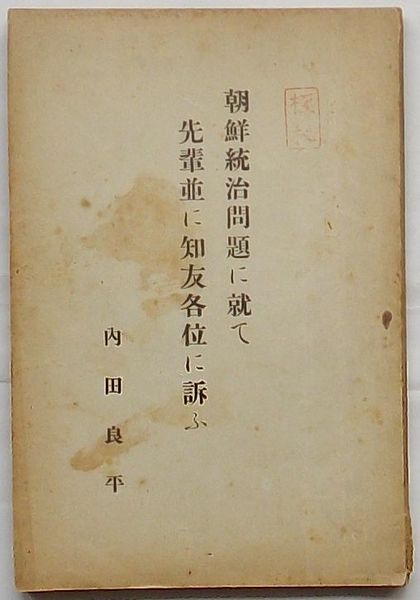 朝鮮統治問題に就て
先輩並に知友各位に訴ふ
內田良平